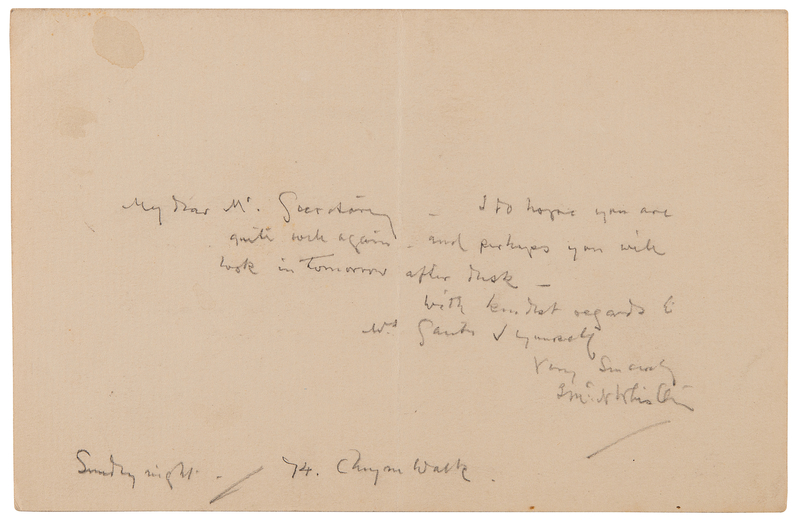 My dear Mr. Secretary – I do hope you are
quite well again – and perhaps you will
look in tomorrow after dusk –
With kindest regards to
Mrs & yourself
Very Sincerely
J McN Whistler
Sunday night – 74. Cheyne Walk.